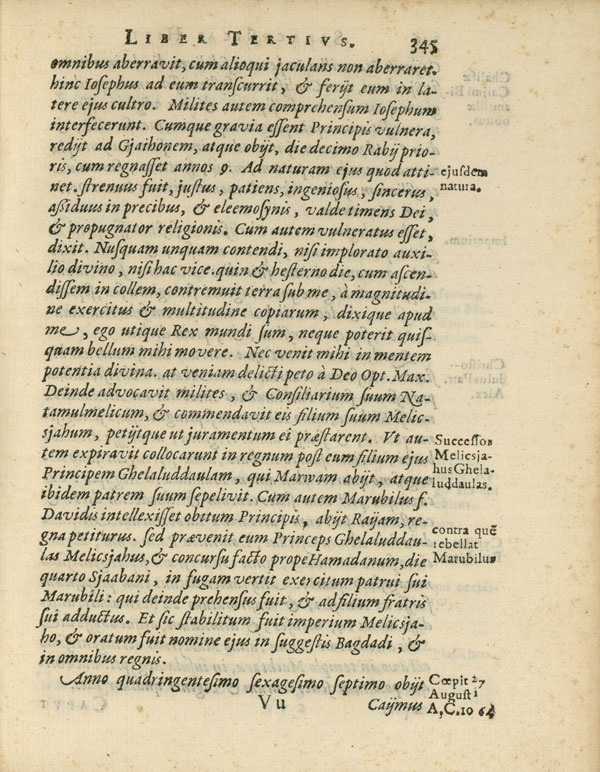 LIBER TERTIVS. 345
omnibus aberravit, cum alioqui jaculans non aberraret.
hinc Iosephus ad eum transcurrit, & ferijt eum in la-
tere ejus cultro. Milites autem comprehensum Iosephum
interfecerunt. Cumque gravia essent Principis vulnera,
redijt ad Gjaihonem, atque obijt, die decimo Rabij prio-
ris, cum regnasset annos 9. Ad naturam ejus quod atti-
ejusdem
net. strenuus fuit, justus, patiens, ingeniosus, sincerus,
natura.
assiduus in precibus, & eleemosynis, valde timens Dei,
& propugnator religionis. Cum autem vulneratus esset,
dixit. Nusquam unquam contendi, nisi implorato auxi-
lio divino, nisi hac vice. quin & hesterno die, cum ascen-
dissem in collem, contremuit terra sub me, à magnitudi-
ne exercitus & multitudine copiarum, dixique apud
me, ego utique Rex mundi sum, neque poterit quis-
quam bellum mihi movere. Nec venit mihi in mentem
potentia divina. at veniam delicti peto à Deo Opt. Max.
Deinde advocavit milites, & Consiliarium suum Na-
tamulmelicum, & commendavit eis filium suum Melic-
sjahum, petijtque ut juramentum ei præstarent. Vt au-
Successor
tem expiravit collocarunt in regnum post eum filium ejus
Melicsja-
Principem Ghelaluddaulam, qui Marwam abijt, atque
hus Ghela-
ibidem patrem suum sepelivit. Cum autem Marubilus f.
luddaulas.
Davidis intellexisset obitum Principis, abijt Raijam, re-
contra quē
gna petiturus. sed prævenit eum Princeps Ghelaluddau-
rebellat
las Melicsjahus, & concursu facto prope Hamadanum, die
Marubilus
quarto Sjaabani, in fugam vertit exercitum patrui sui
Marubili: qui deinde prehensus fuit, & ad filium fratris
sui adductus. Et sic stabilitum fuit imperium Melicsja-
ho, & oratum fuit nomine ejus in suggestis Bagdadi, &
in omnibus regnis.
Anno quadringentesimo sexagesimo septimo obijt
Cœpit 27
August i
Vu Caijmus
A, C. 10 64